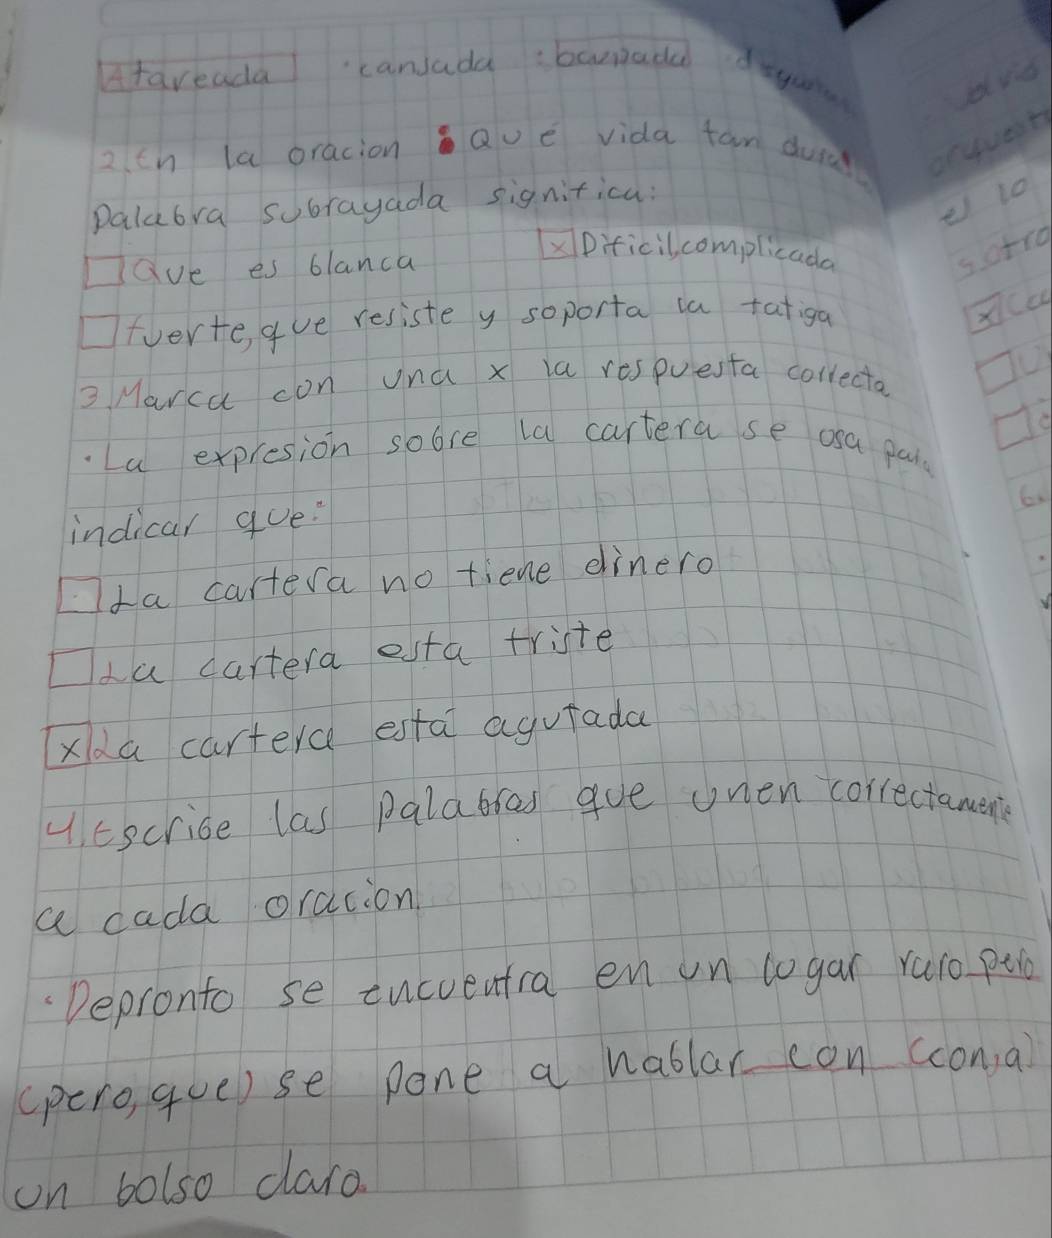 Atareada · cansada : ocupada
2. En la oracion ¡ Que vida tan dura!
palabra subrayada significa:
□ Que es blanca ☒ Dificil, complicada
□ fuerte, que resiste y soporta la fatiga
3. Marca con una x la respuesta correcta
· La expresión sobre la cartera se osa para
indicar que:
□ La cartera no tiene dinero
□ La cartera esta triste
☒ La cartera está agutada
4. Escribe las palabras que unen correctamente
a cada oracion
· Depronto se encuentra en un lugar raro pero
(pero, que) se pone a hablar con (con, a)
un bolso claro.
es lo